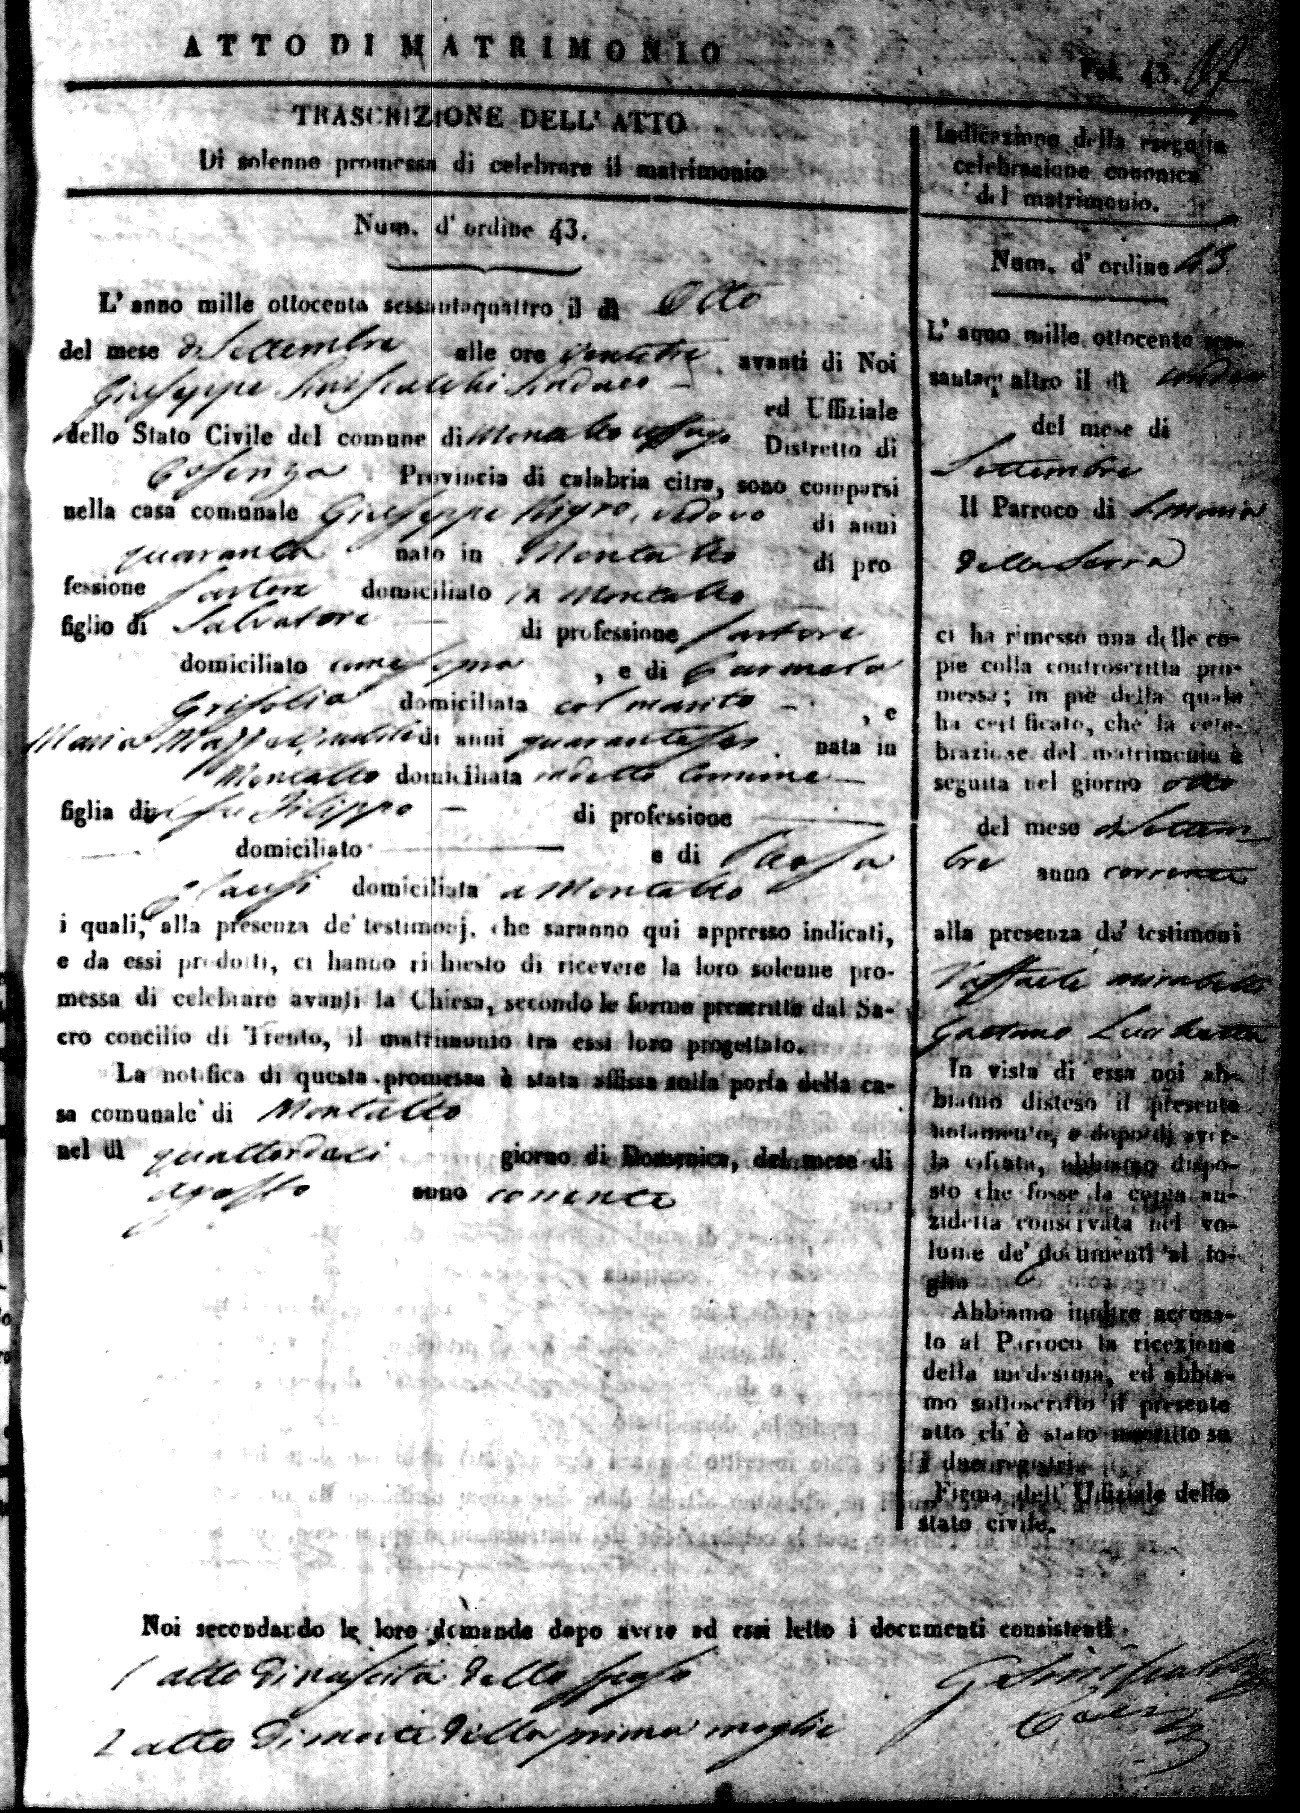 ATTO DI MATRIMONIO
Fol. 43.
TRASCRIZIONE DELL' ATTO
Di solenne promessa di celebrare il matrimonio
Num. d' ordine 43.
L' anno mille ottocento sessantaquattro il dì Otto
del mese di Settembre alle ore ventitre avanti di Noi
Giuseppe Siniscalchi Sindaco
ed Uffiziale
dello Stato Civile del comune di Montalto Uffugo Distretto di
Cosenza Provincia di calabria citra, sono comparsi
nella casa comunale Giuseppe Nigro, vedovo di anni
quaranta nato in Montalto di pro
fessione Sartore domiciliato in Montalto
figlio di Salvatore di professione Sartore
domiciliato come sopra , e di Carmela
Grisolia domiciliata col marito , e
Maria di anni quarantasei nata in
Montalto domiciliata in detto Comune
figlia di fu Filippo di professione
domiciliato e di Rosa
domiciliata a Montalto
i quali, alla presenza de' testimonj, che saranno qui appresso indicati,
e da essi prodotti, ci hanno richiesto di ricevere la loro solenne pro-
messa di celebrare avanti la Chiesa, secondo le forme prescritte dal Sa-
cro concilio di Trento, il matrimonio tra essi loro progettato.
La notifica di questa promessa è stata affissa sulla porta della ca-
sa comunale di Montalto
nel dì quattordici giorno di Domenica, del mese di
Agosto anno corrente
Indicazione della eseguita
celebrazione canonica
del matrimonio.
Num. d' ordine 43
L' anno mille ottocento ses-
santaquattro il dì
del mese di
Settembre
Il Parroco di
della Serra
ci ha rimesso una delle co-
pie colla controscritta pro-
messa; in piè della quale
ha certificato, che la cele-
brazione del matrimonio è
seguita nel giorno otto
del mese di Settem
bre anno corrente
alla presenza de' testimoni
Raffaele Mirabelli
Gaetano
In vista di essa noi ab-
biamo disteso il presente
notamento, e dopo di aver-
la cifrata, abbiamo dispo-
sto che fosse la copia an-
zidetta conservata nel vo-
lume de' documenti al fo-
glio
Abbiamo inoltre accusa-
to al Parroco la ricezione
della medesima, ed abbia-
mo sottoscritto il presente
atto ch' è stato inscritto su
i due registri
Firma dell' Uffiziale dello
stato civile.
Noi secondando le loro domande dopo avere ad essi letto i documenti consistenti
1 atto di nascita dello sposo
2 atto di morte della prima moglie